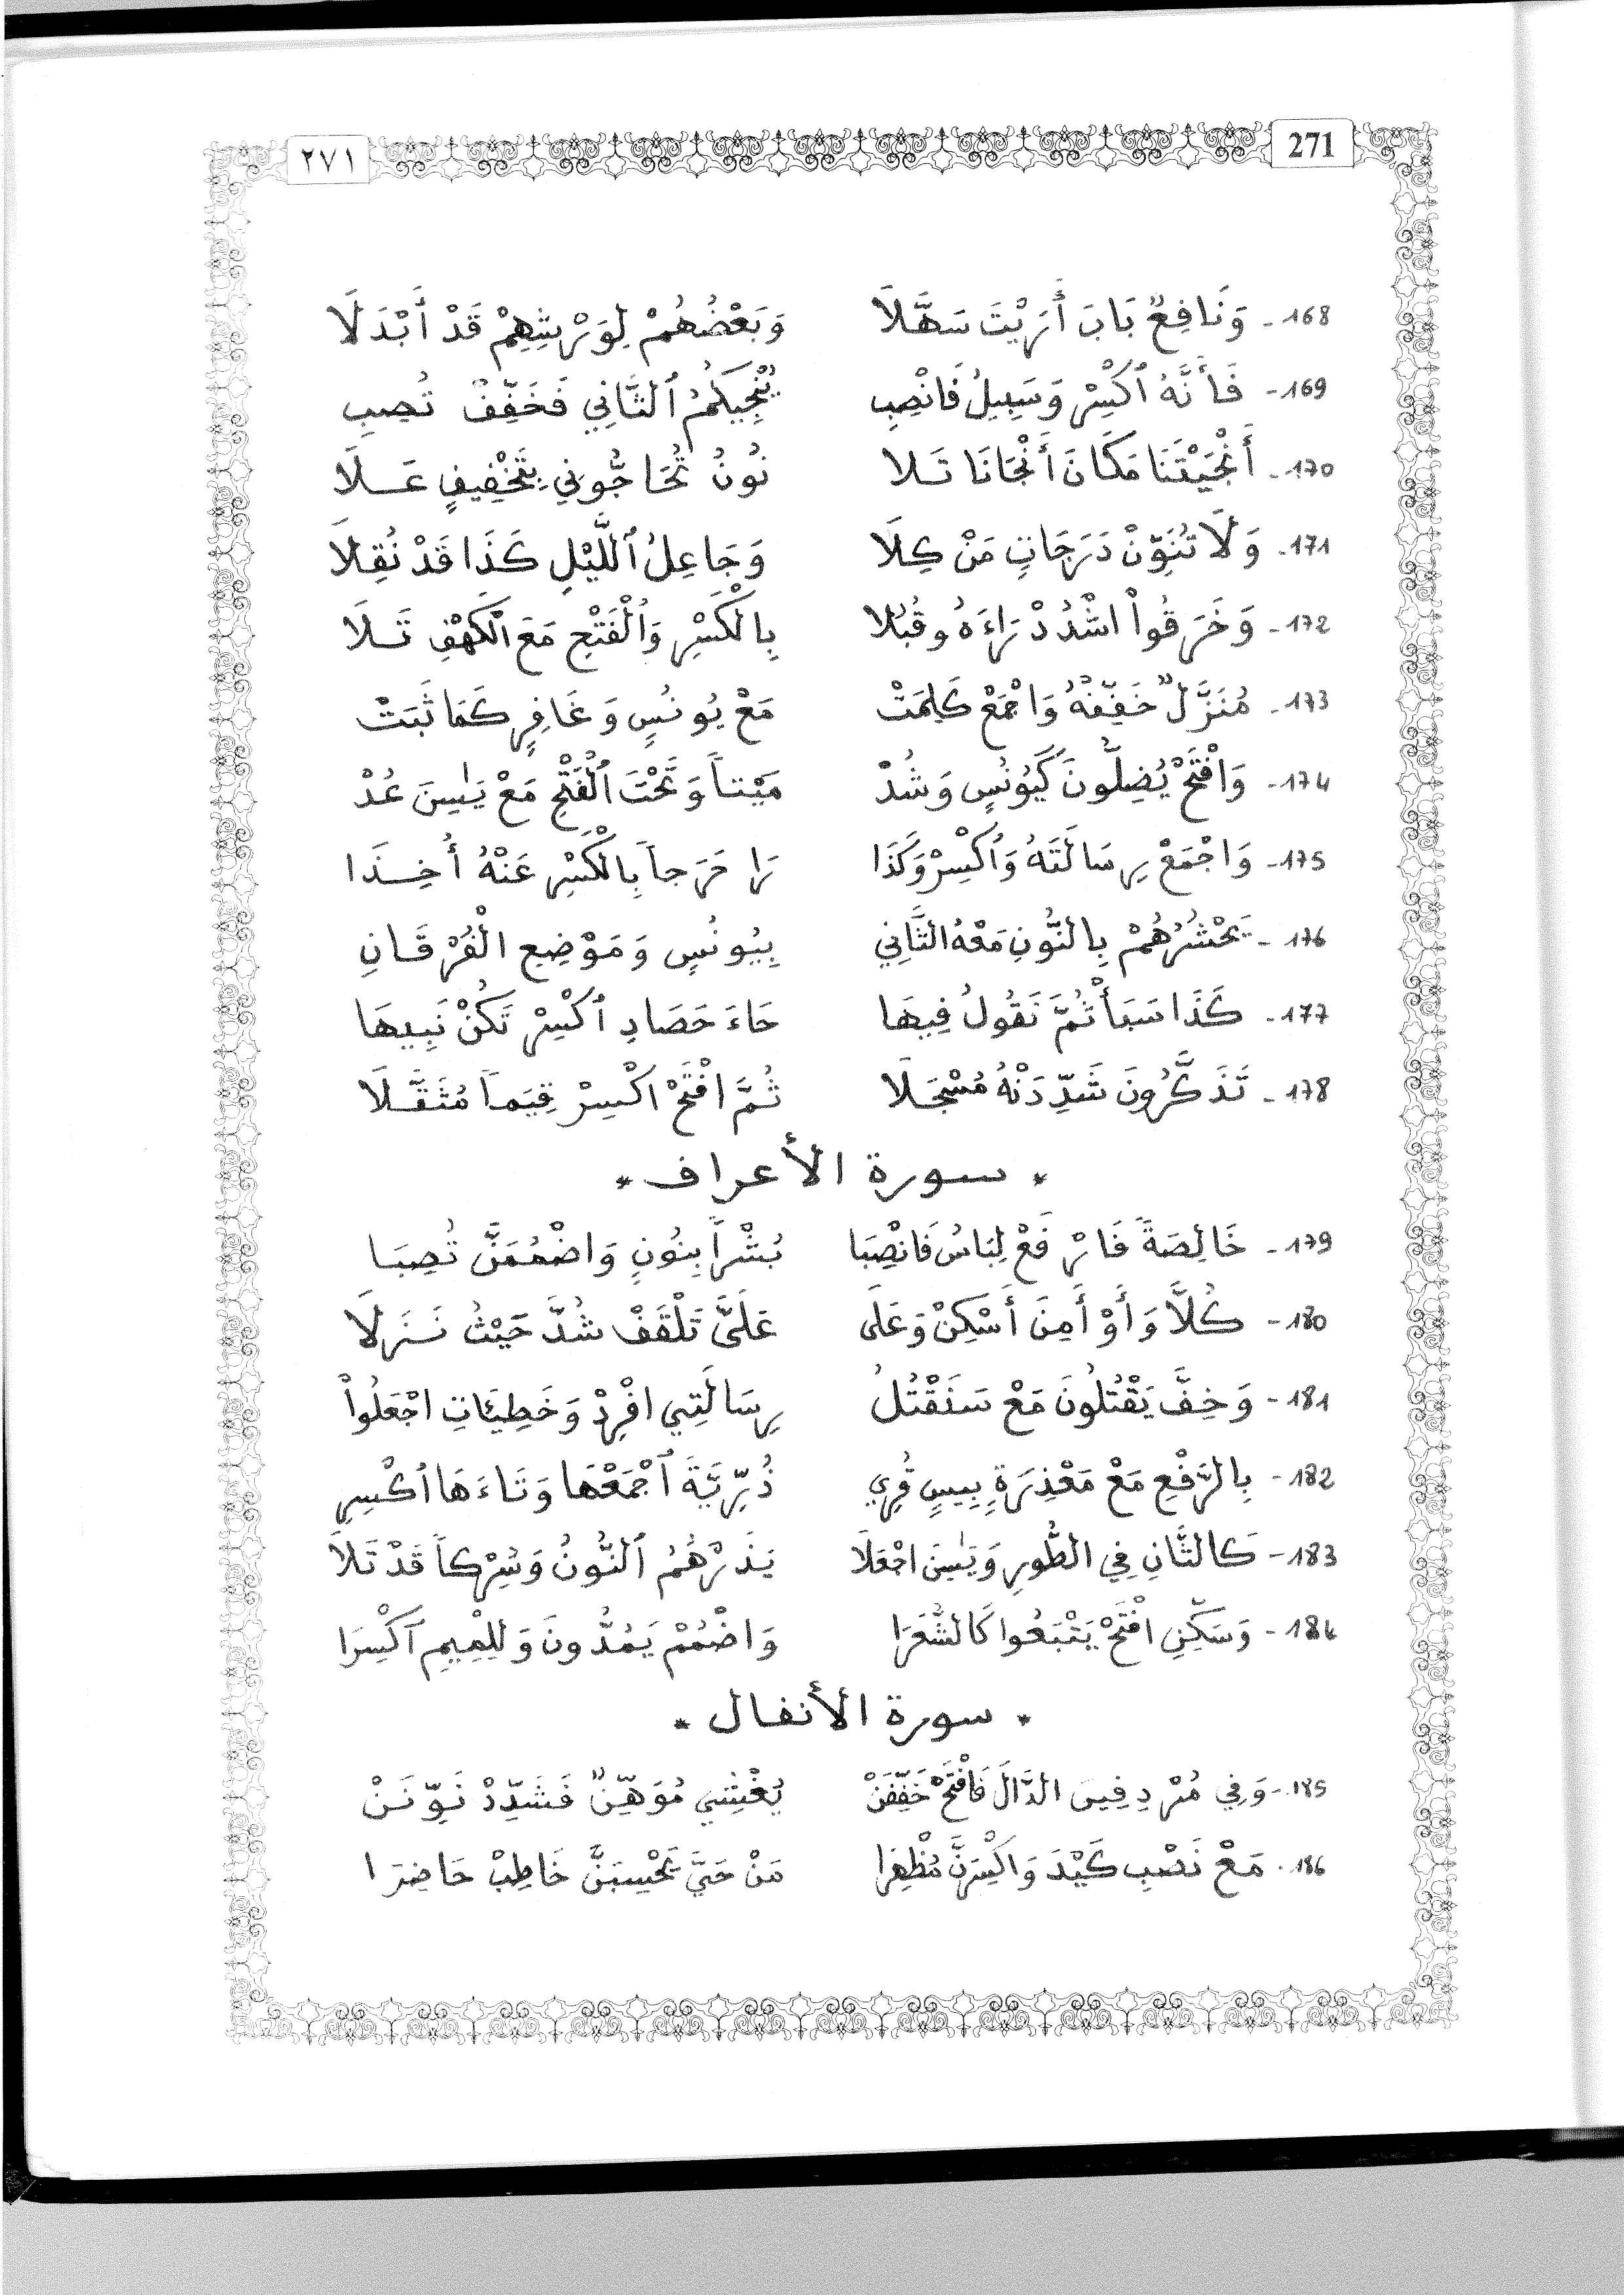 ٢٧١ 271
168- وَنَافِعٌ بَابَ أَرَيْتَ سَهَّلَا وَبَعْضُهُمْ لِوَرْشِهِمْ قَدْ أَبْدَلَا
169- فَأَنَّهُ ٱكْسِرْ وَسَبِيلُ فَانْصِبِ يُنْجِيكُمُ ٱلثَّانِي فَخَفِّفْ تُصِبِ
170- أَنْجَيْتَنَا مَكَانَ أَنْجَانَا تَلا نُونُ تُحَاجُّونِي بِتَخْفِيفٍ عَلَا
171- وَلَا تُنَوِّنْ دَرَجَاتِ مَنْ كِلَا وَجَاعِلُ ٱللَّيْلِ كَذَا قَدْ نُقِلَا
172- وَخَرَقُواْ اشْدُدْ رَاءَهُ وقُبُلا بِالْكَسْرِ وَٱلْفَتْحِ مَعَ الْكَهْفِ تَلَا
173- مُنَزَّلٌ خَفِّفْهُ وَاجْمَعْ كَلِمَتْ مَعْ يُونُسٍ وَغَافِرٍ كَمَا ثَبَتْ
174- وَافْتَحْ يُضِلُّونَ كَيُونُسٍ وَشُدْ مَيْتاً وَتَحْتَ ٱلْفَتْحِ مَعْ يَٰسِينَ عُدْ
175- وَاجْمَعْ رِسَالَتَهُ وَٱكْسِرْ وَكَذَا رَا حَرَجاً بِالْكَسْرِ عَنْهُ أُخِذَا
176- يَحْشُرُهُمْ بِالنُّونِ مَعْهُ الثَّانِي بِيُونُسٍ وَمَوْضِعِ الْفُرْقَانِ
177- كَذَا سَبَأْ ثُمَّ نَقُولُ فِيهَا حَاءَ حَصَادِ ٱكْسِرْ تَكُنْ نَبِيهَا
178- تَذَكَّرُونَ شَدِّدَنْهُ مُسْجَلَا ثُمَّ افْتَحْ اكْسِرْ قِيَماً مُثَقَّلَا
* سورة الأعراف *
179- خَالِصَةً فَارْفَعْ لِبَاسُ فَانْصِبَا بُشْراً بِنُونٍ وَاضْمُمَنَّ تُصِبَا
180- كُلاًّ وَأَوْ أَمِنَ أَسْكِنْ وَعَلَى عَلَيَّ تَلْقَفْ شُدَّ حَيْثُ نَزَلَا
181- وَخِفَّ يَقْتُلُونَ مَعْ سَنَقْتُلُ رِسَالَتِي افْرِدْ وَخَطِيئَاتِ اجْعَلُواْ
182- بِالرَّفْعِ مَعْ مَعْذِرَةٍ بِيسٍ قُرِي ذُرِّيَّةَ ٱجْمَعْهَا وَتَاءَهَا ٱكْسِرِ
183- كَالثَّانِ فِي الطُّورِ وَيَٰسِينَ اجْعَلَا يَذَرْهُمُ ٱلنُّونُ وَشِرْكاً قَدْ تَلَا
184- وَسَكِّنِ افْتَحْ يَتْبَعُوا كَالشُّعَرَا وَاضْمُمْ يَمُدُّونَ وَلِلْمِيمِ ٱكْسِرَا
* سورة الأنفال *
185- وَفِي مُرْدِفِينَ الدَّالَ فَافْتَحْ خَفِّفَنْ يُغْشِي مُوَهِّنٌ فَشَدِّدْ نَوِّنَنْ
186- مَعْ نَصْبِ كَيْدَ وَاكْسِرَنَّ مُظْهِرا مَنْ حَيَّ تَحْسِبَنَّ خَاطِبْ حَاضِرَا